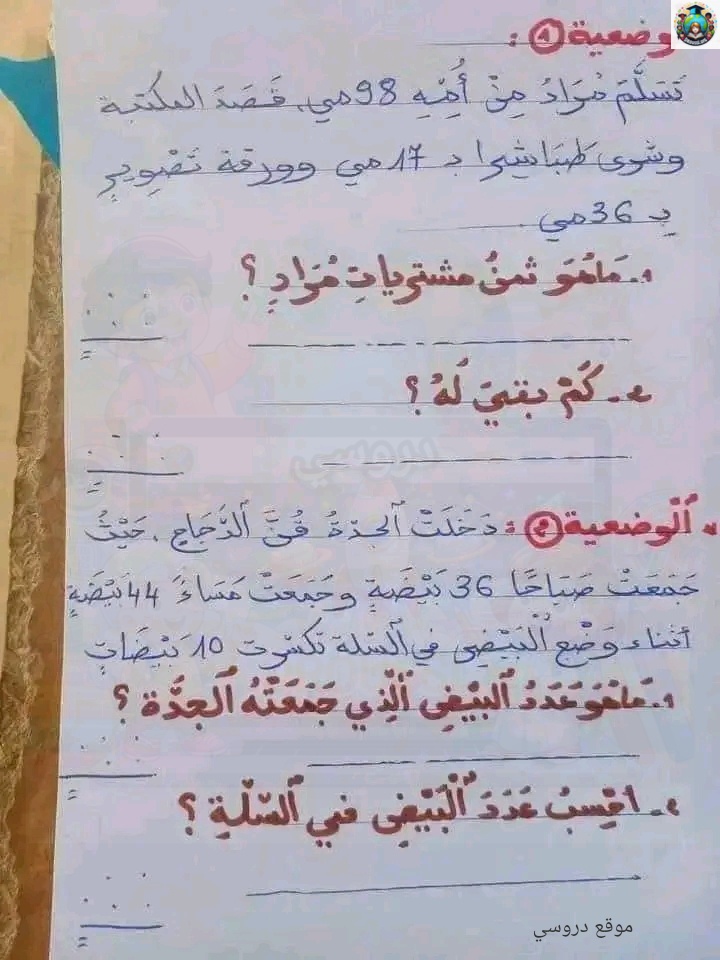 وضعية 1 :
تَسَلَّمَ مُرَادُ مِنْ أُمِّهِ 98 مي، قَصَدَ المكتبة
وشرى طَبَاشيرا بـ 17 مي وورقة تَصْوِيرٍ
بِـ 36 مي.
1- مَاهُوَ ثمنُ مشترياتِ مُرَادٍ ؟
2- كَمْ بقيَ لَهُ ؟
دروسي
الْوضعية 2 : دَخَلَتْ الجدّةُ قُنَّ الدَّجَاجِ ، حَيْثُ
جَمَعَتْ صَبَاحًا 36 بَيْضَةٍ وجَمَعَتْ مَسَاءً 44 بَيْضَةٍ
أثناء وَضْعِ الْبَيْضِ في السّلة تكسّرت 10 بَيْضَاتٍ
1- مَاهُوَ عَدَدُ البَيْضِ الَّذِي جَمَعَتْهُ الجدَّة ؟
2- احْسِبْ عَدَدَ الْبَيْضِ في السّلّةِ ؟
موقع دروسي